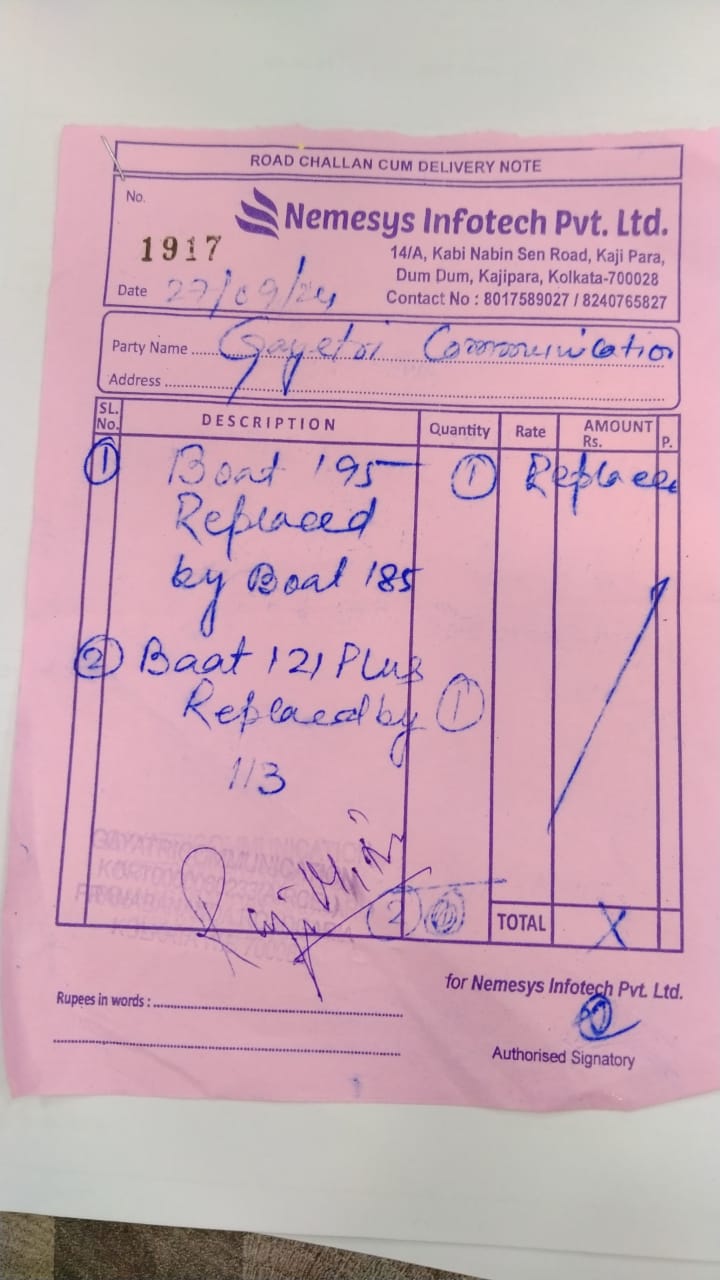 ROAD CHALLAN CUM DELIVERY NOTE
No.
1917
Nemesys Infotech Pvt. Ltd.
14/A, Kabi Nabin Sen Road, Kaji Para,
Dum Dum, Kajipara, Kolkata-700028
Contact No : 8017589027 / 8240765827
Date 27/09/24
Party Name Gayetri Communication
Address
SL. No. DESCRIPTION Quantity Rate AMOUNT Rs. P.
1 Boat 195 1 Replace
Replaced
by Boat 185
2 Baat 121 Plus
Replaced by 1
113
GAYATRI COMMUNICATION
2
TOTAL X
for Nemesys Infotech Pvt. Ltd.
Rupees in words :
Authorised Signatory